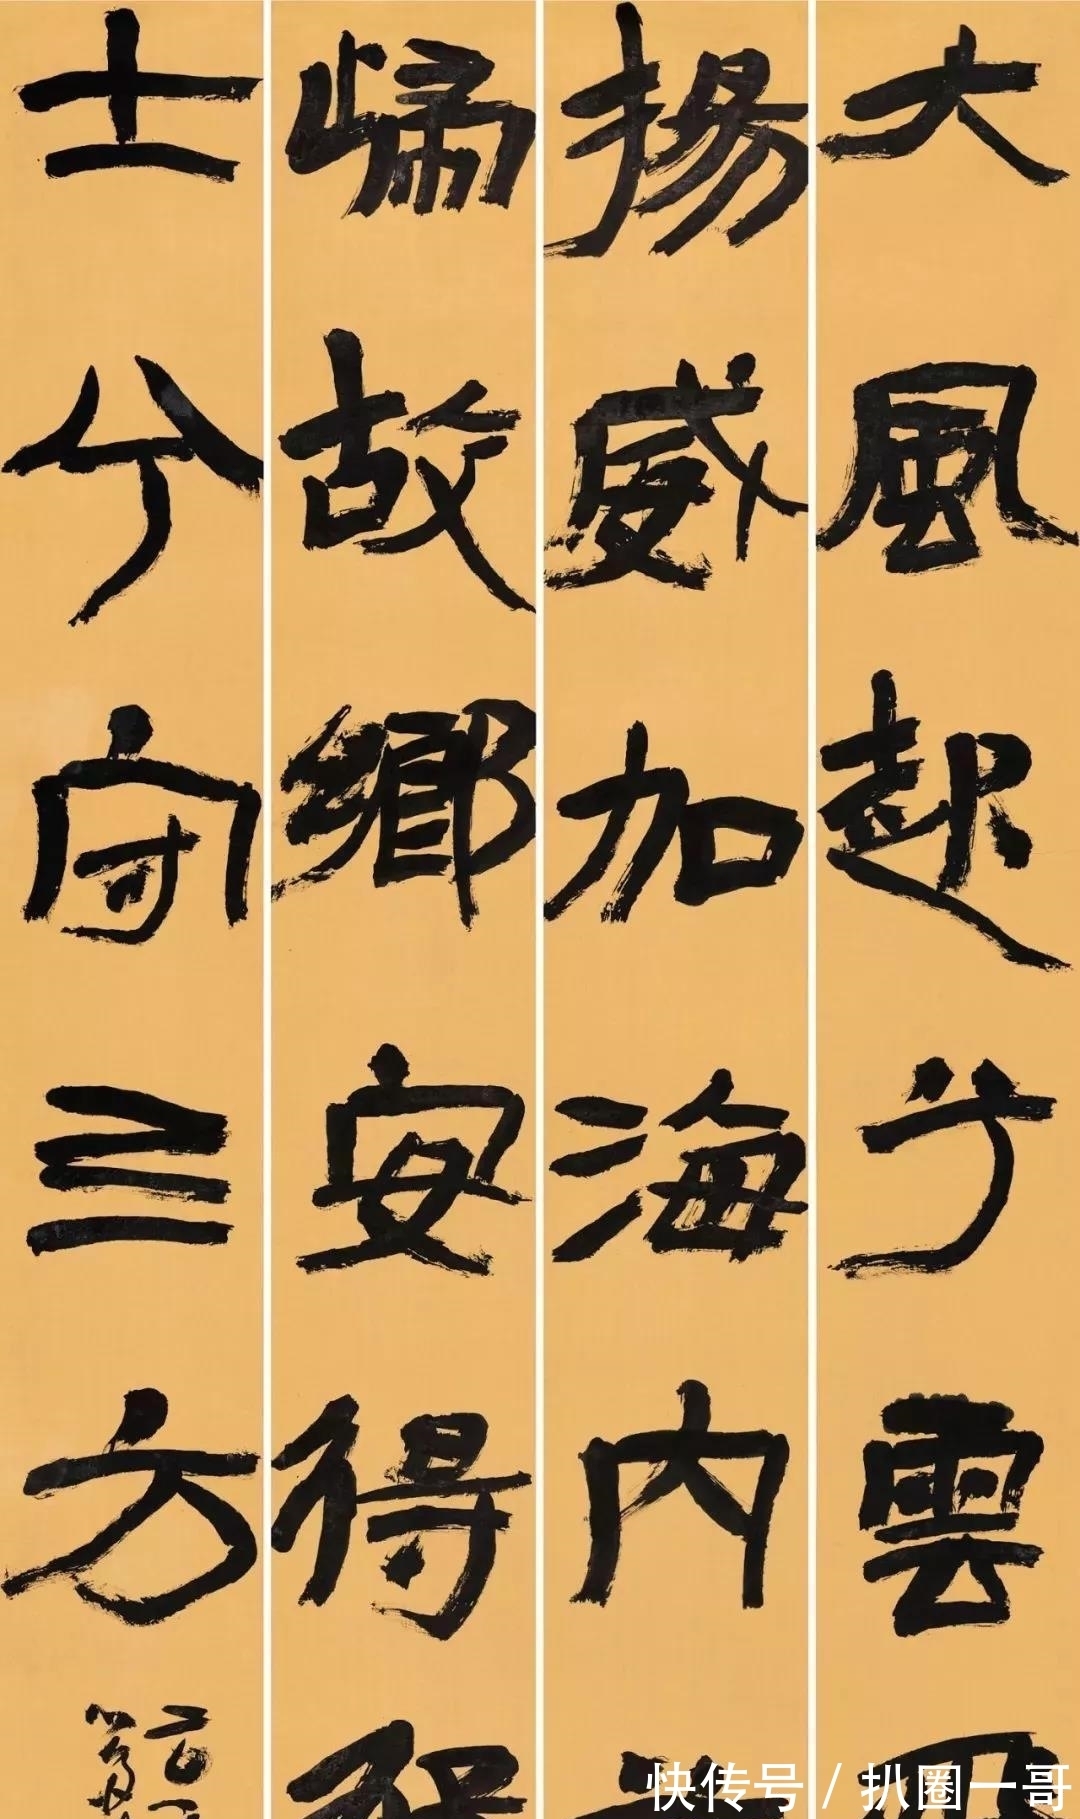 大風起兮雲
揚威加海内
歸故鄉安得
士兮守亖方
快传号 / 扒圈一哥